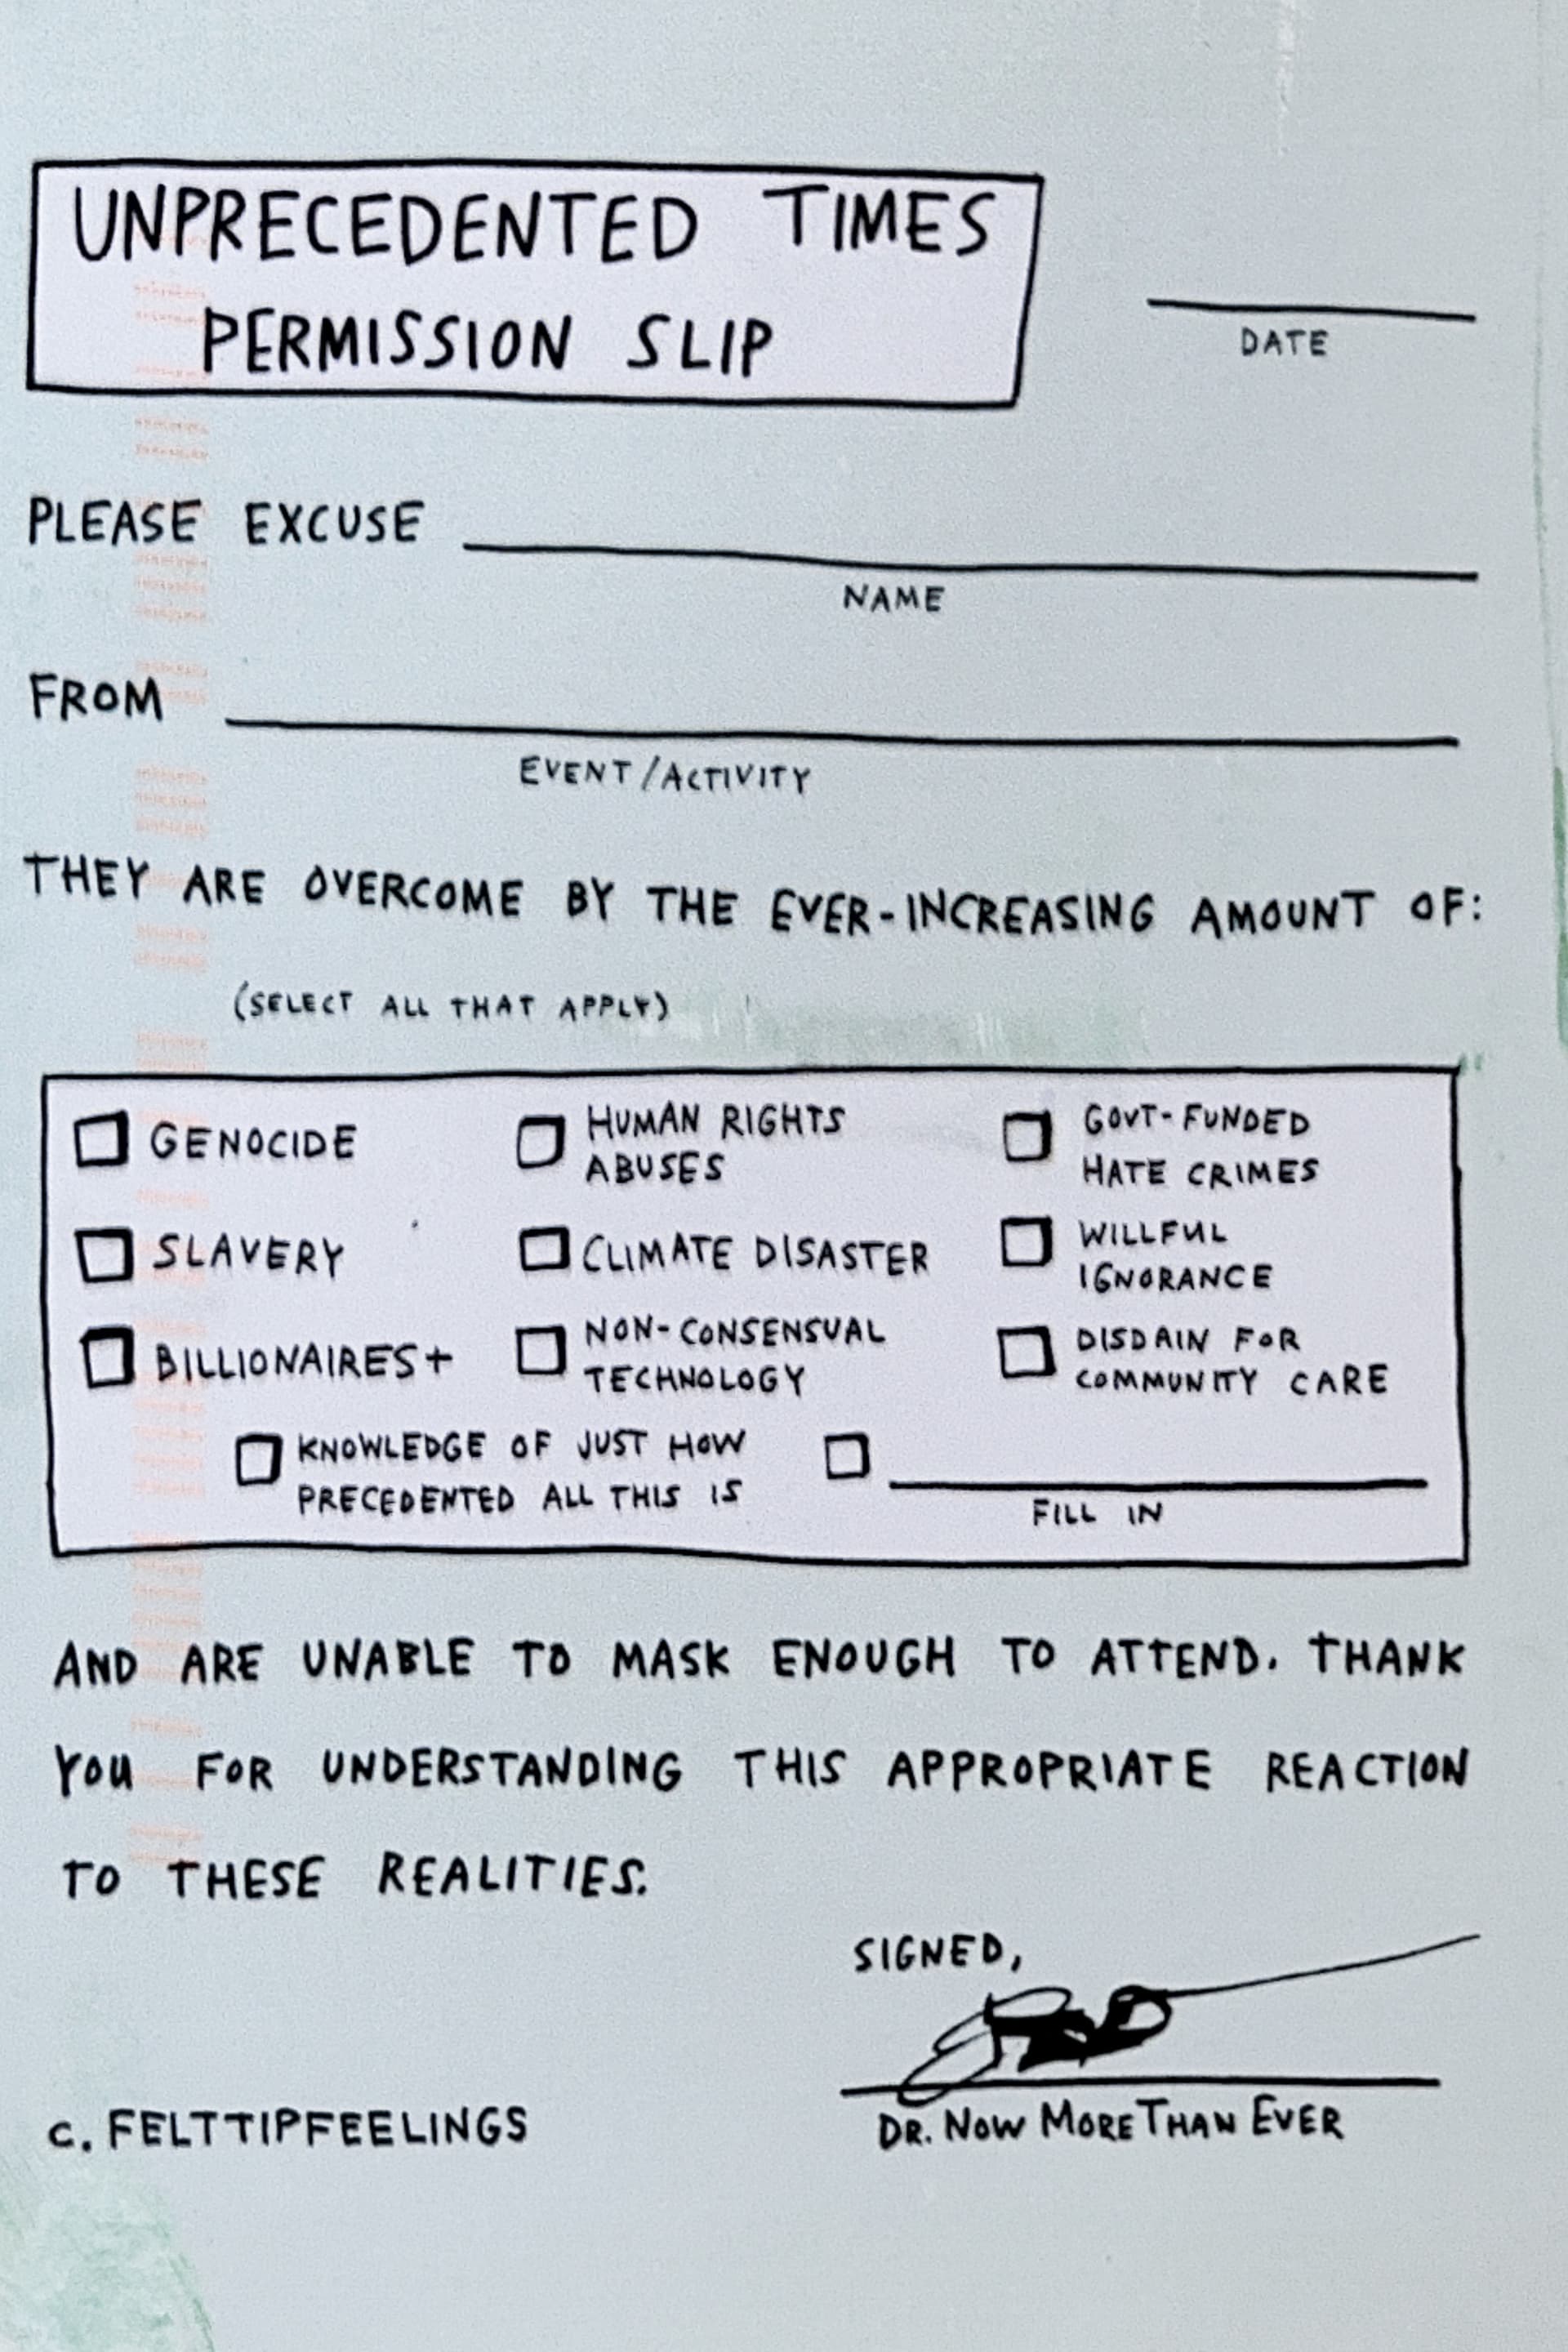 UNPRECEDENTED TIMES
PERMISSION SLIP
DATE
PLEASE EXCUSE
NAME
FROM
EVENT/ACTIVITY
THEY ARE OVERCOME BY THE EVER-INCREASING AMOUNT OF:
(SELECT ALL THAT APPLY)
GENOCIDE
HUMAN RIGHTS
ABUSES
GOVT-FUNDED
HATE CRIMES
SLAVERY
CLIMATE DISASTER
WILLFUL
IGNORANCE
BILLIONAIRES+
NON-CONSENSUAL
TECHNOLOGY
DISDAIN FOR
COMMUNITY CARE
KNOWLEDGE OF JUST HOW
PRECEDENTED ALL THIS IS
FILL IN
AND ARE UNABLE TO MASK ENOUGH TO ATTEND. THANK
YOU FOR UNDERSTANDING THIS APPROPRIATE REACTION
TO THESE REALITIES.
SIGNED,
DR. NOW MORE THAN EVER
c. FELTTIPFEELINGS